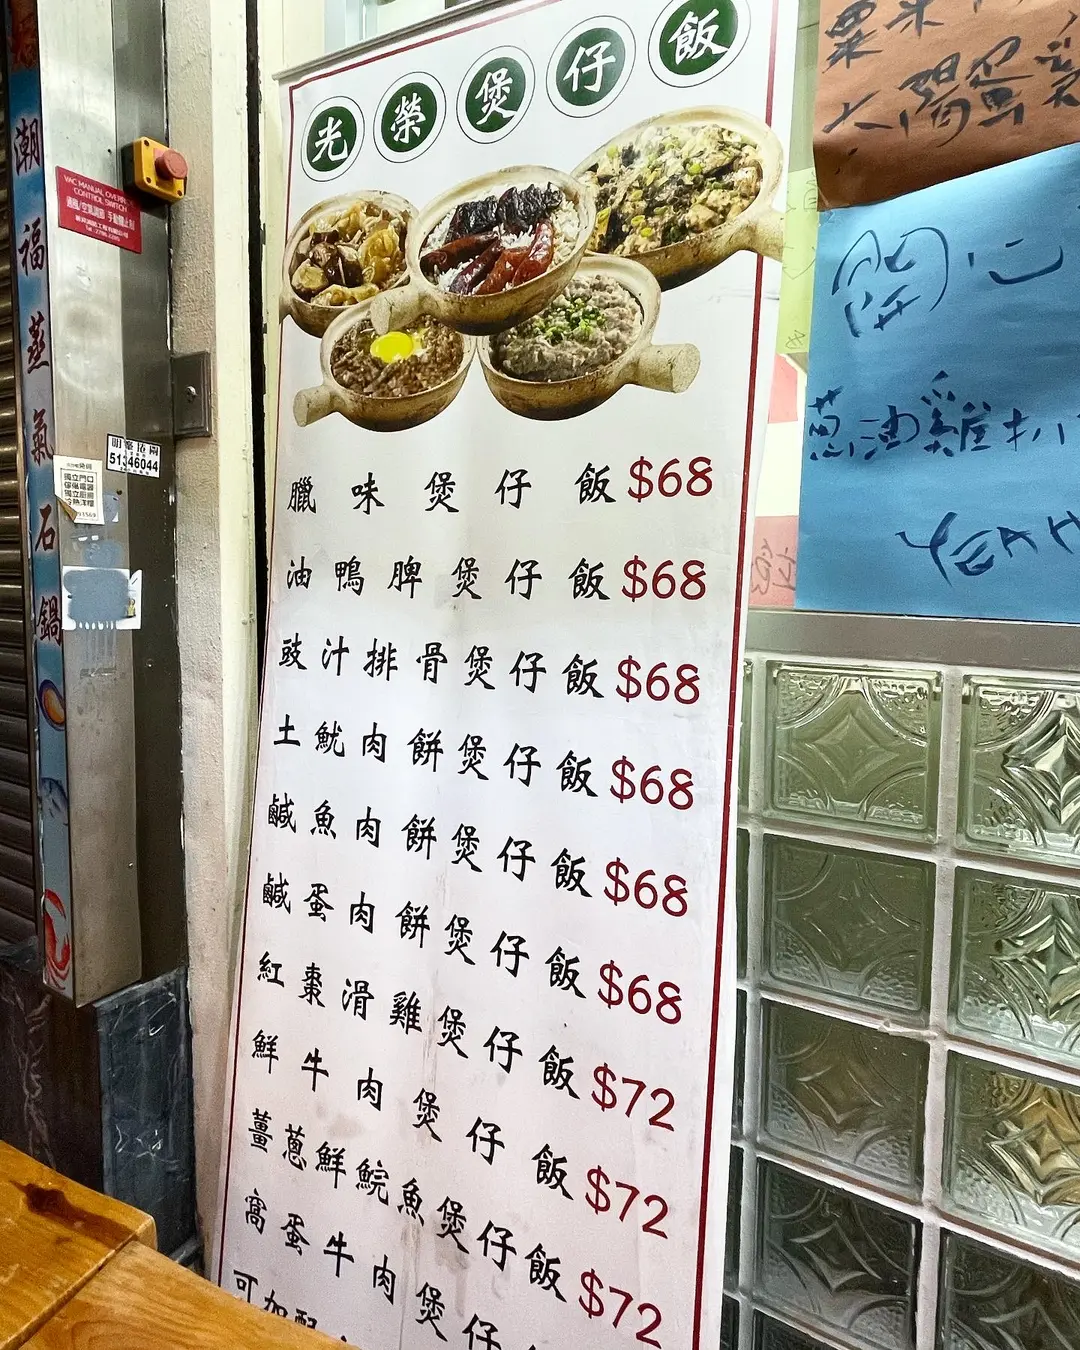 光榮煲仔飯
臘味煲仔飯 $68
油鴨脾煲仔飯 $68
豉汁排骨煲仔飯 $68
土魷肉餅煲仔飯 $68
鹹魚肉餅煲仔飯 $68
鹹蛋肉餅煲仔飯 $68
紅棗滑雞煲仔飯 $72
鮮牛肉煲仔飯 $72
薑蔥鮮鯇魚煲仔飯 $72
窩蛋牛肉煲仔
可加配
潮福蒸氣石鍋
VAC MANUAL OVERRIDE
CONTROL SWITCH
51346044
獨立門口
獨立廚房
開心
蔥油雞扒
YEAH